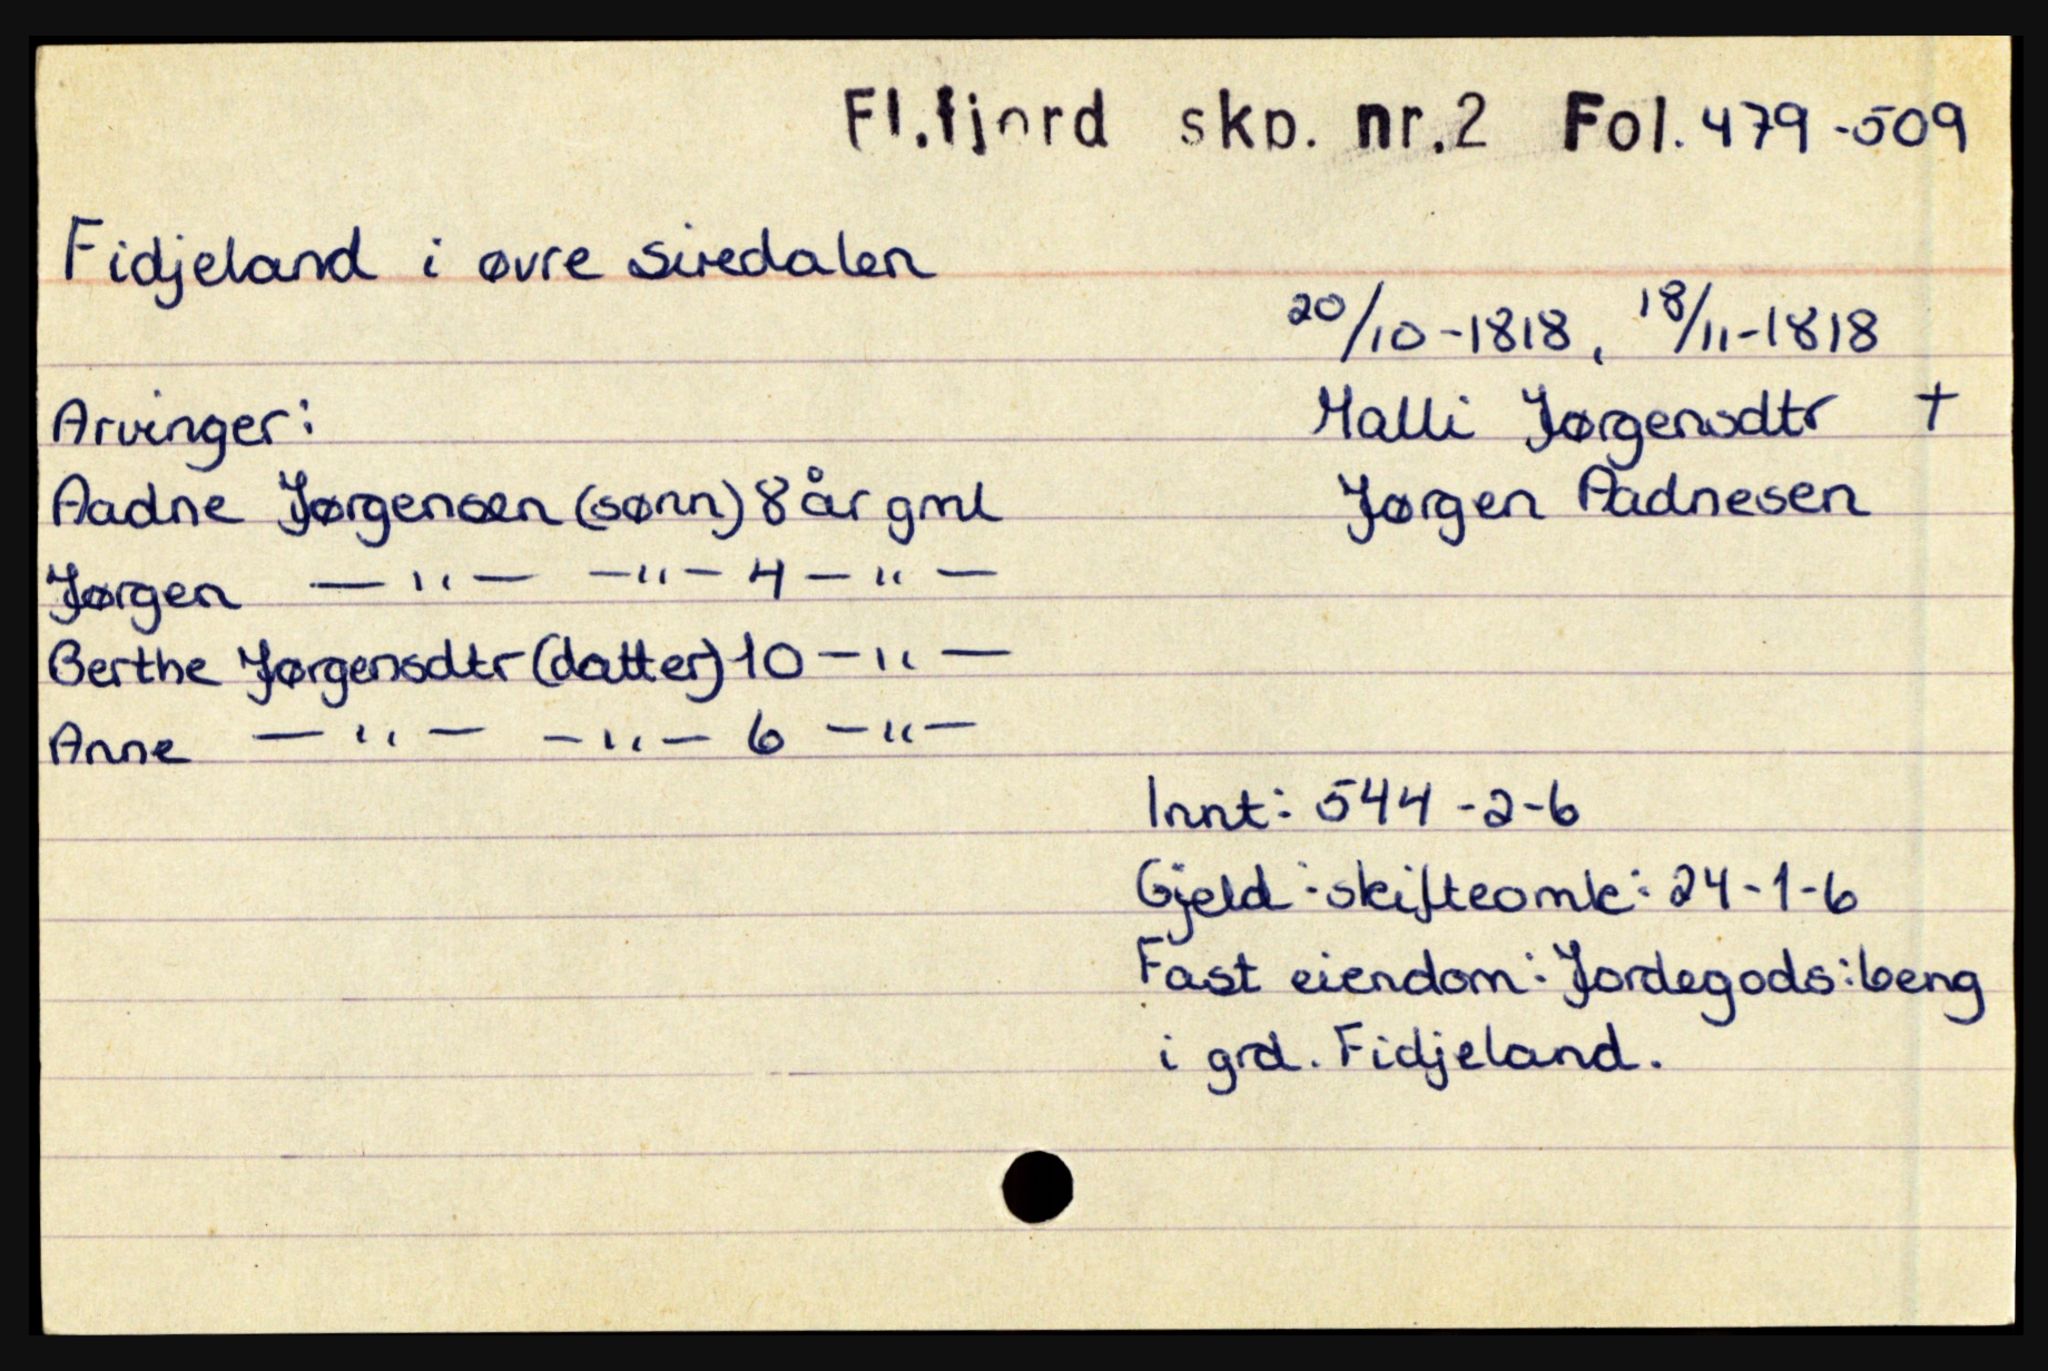 Fl.fjord skp. nr.2 Fol. 479-509
Fidjeland i øvre Siredalen
20/10-1818, 18/11-1818
Malli Jørgensdtr +
Jørgen Aadnesen
Arvinger:
Aadne Jørgensen (sønn) 8 år gml
Jørgen — " — — " — 4 — " —
Berthe Jørgensdtr (datter) 10 — " —
Anne — " — — " — 6 — " —
Innt: 544-2-6
Gjeld: skifteomk: 24-1-6
Fast eiendom: Jordegods: beng
i grd. Fidjeland.